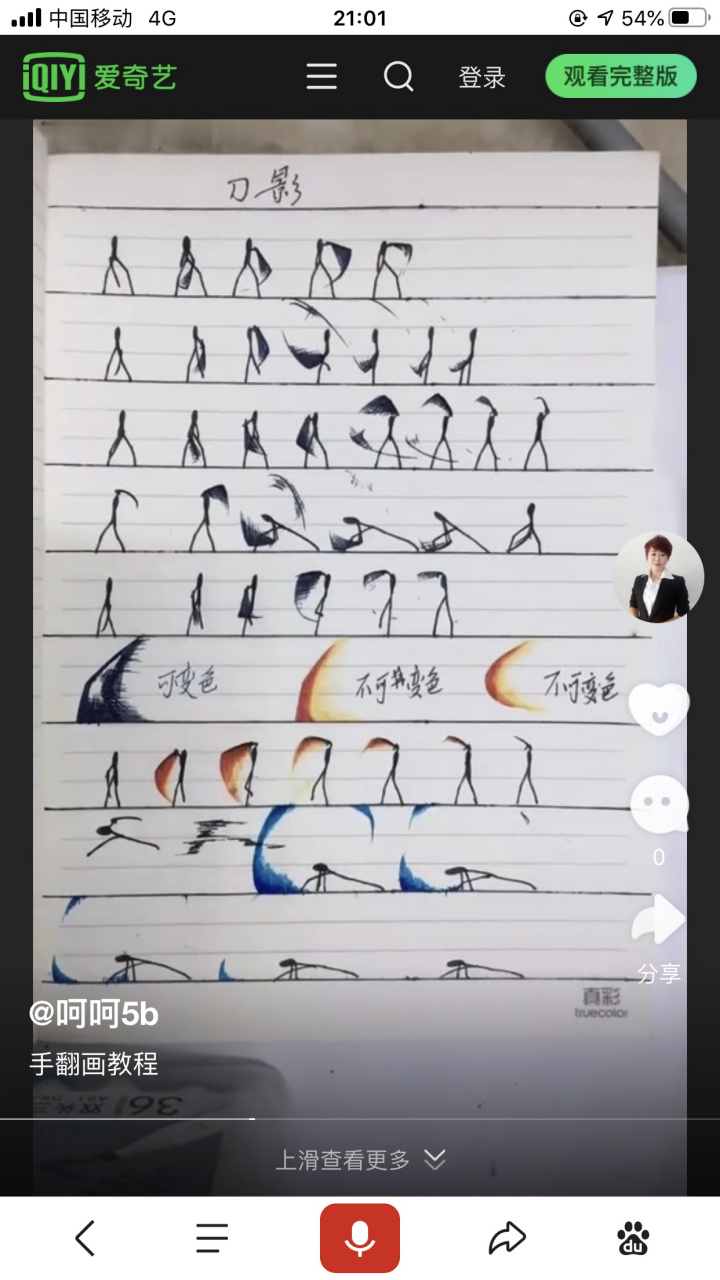 中国移动 4G 21:01 54%
iQIYI 爱奇艺 登录 观看完整版
刀影
可变色 不可变色 不可变色
0
分享
真彩
truecolor
@呵呵5b
手翻画教程
36 双头
上滑查看更多
du